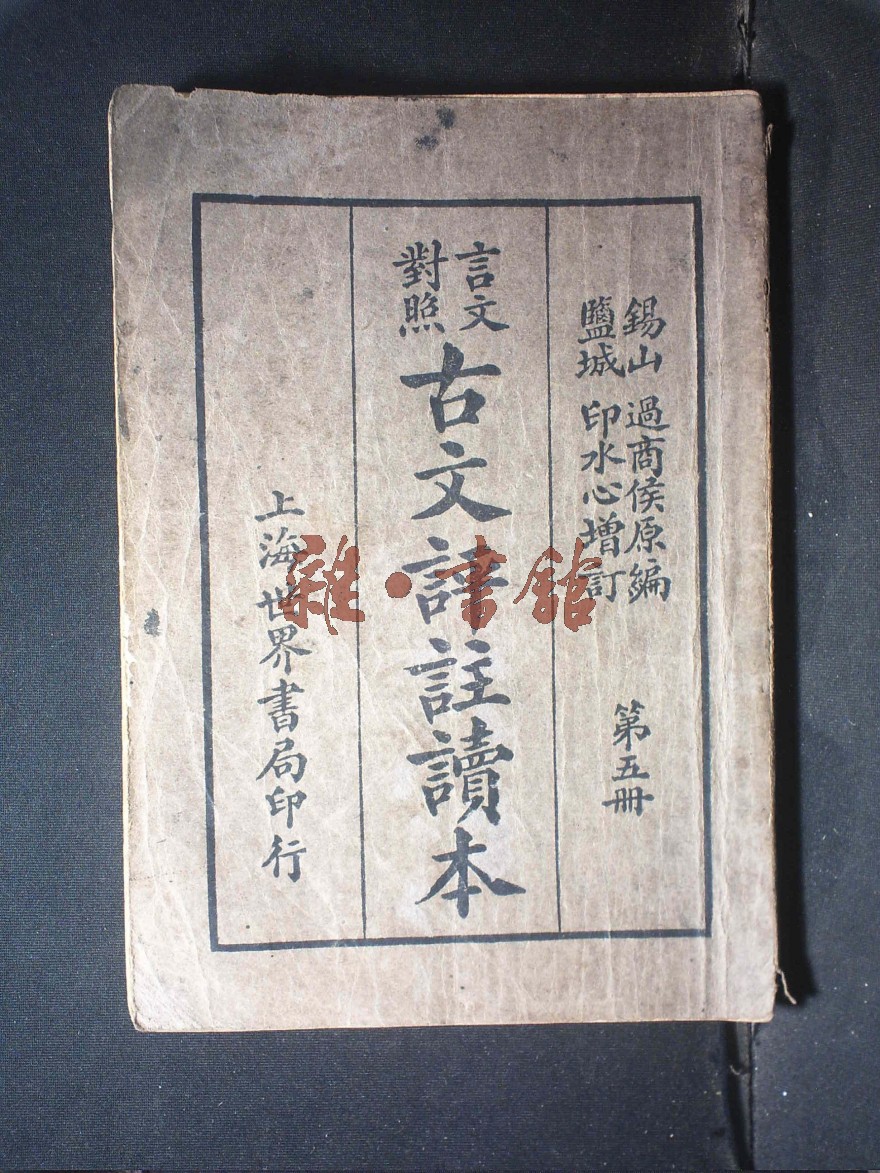 錫山 過商侯原編
鹽城 印水心增訂
第五冊
言文
對照
古文評註讀本
上海世界書局印行
雜·書館